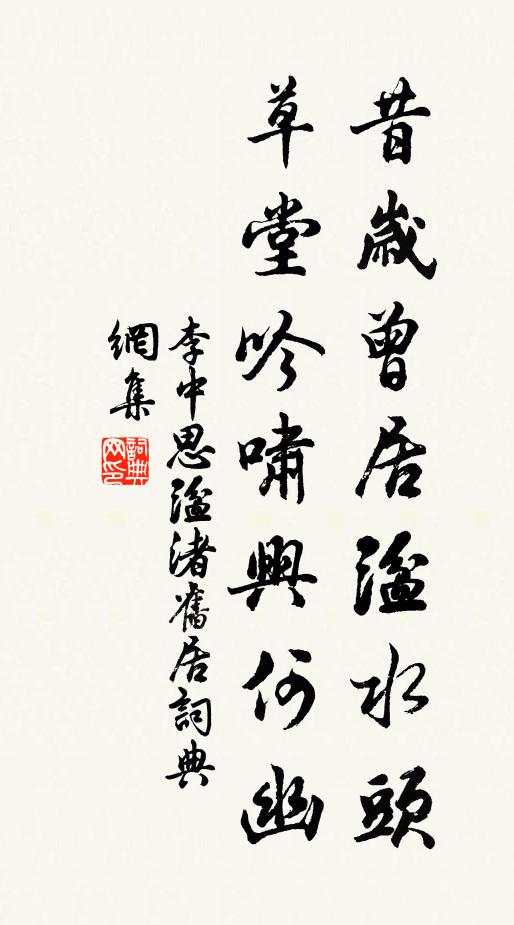 昔歲曾居湓水頭
草堂吟嘯興何幽
李中思湓渚舊居詞典
網集
詞典網印